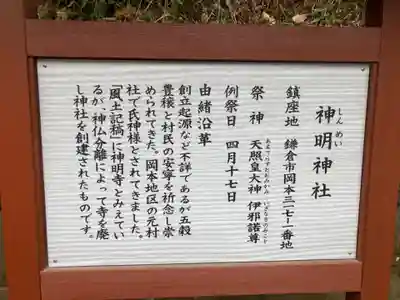 しんめい
神明神社
鎮座地　鎌倉市岡本三一七ー一番地
祭神　天照皇大神　伊邪諾尊
例祭日　四月十七日
由緒沿革
創立起源など不詳であるが五穀
豊穣と村民の安寧を祈念し崇
められてきた。岡本地区の元村
社で氏神様とされてきました。
「風土記稿」に神明寺とみえてい
るが、神仏分離によって寺を廃
し神社を創建されたものです。